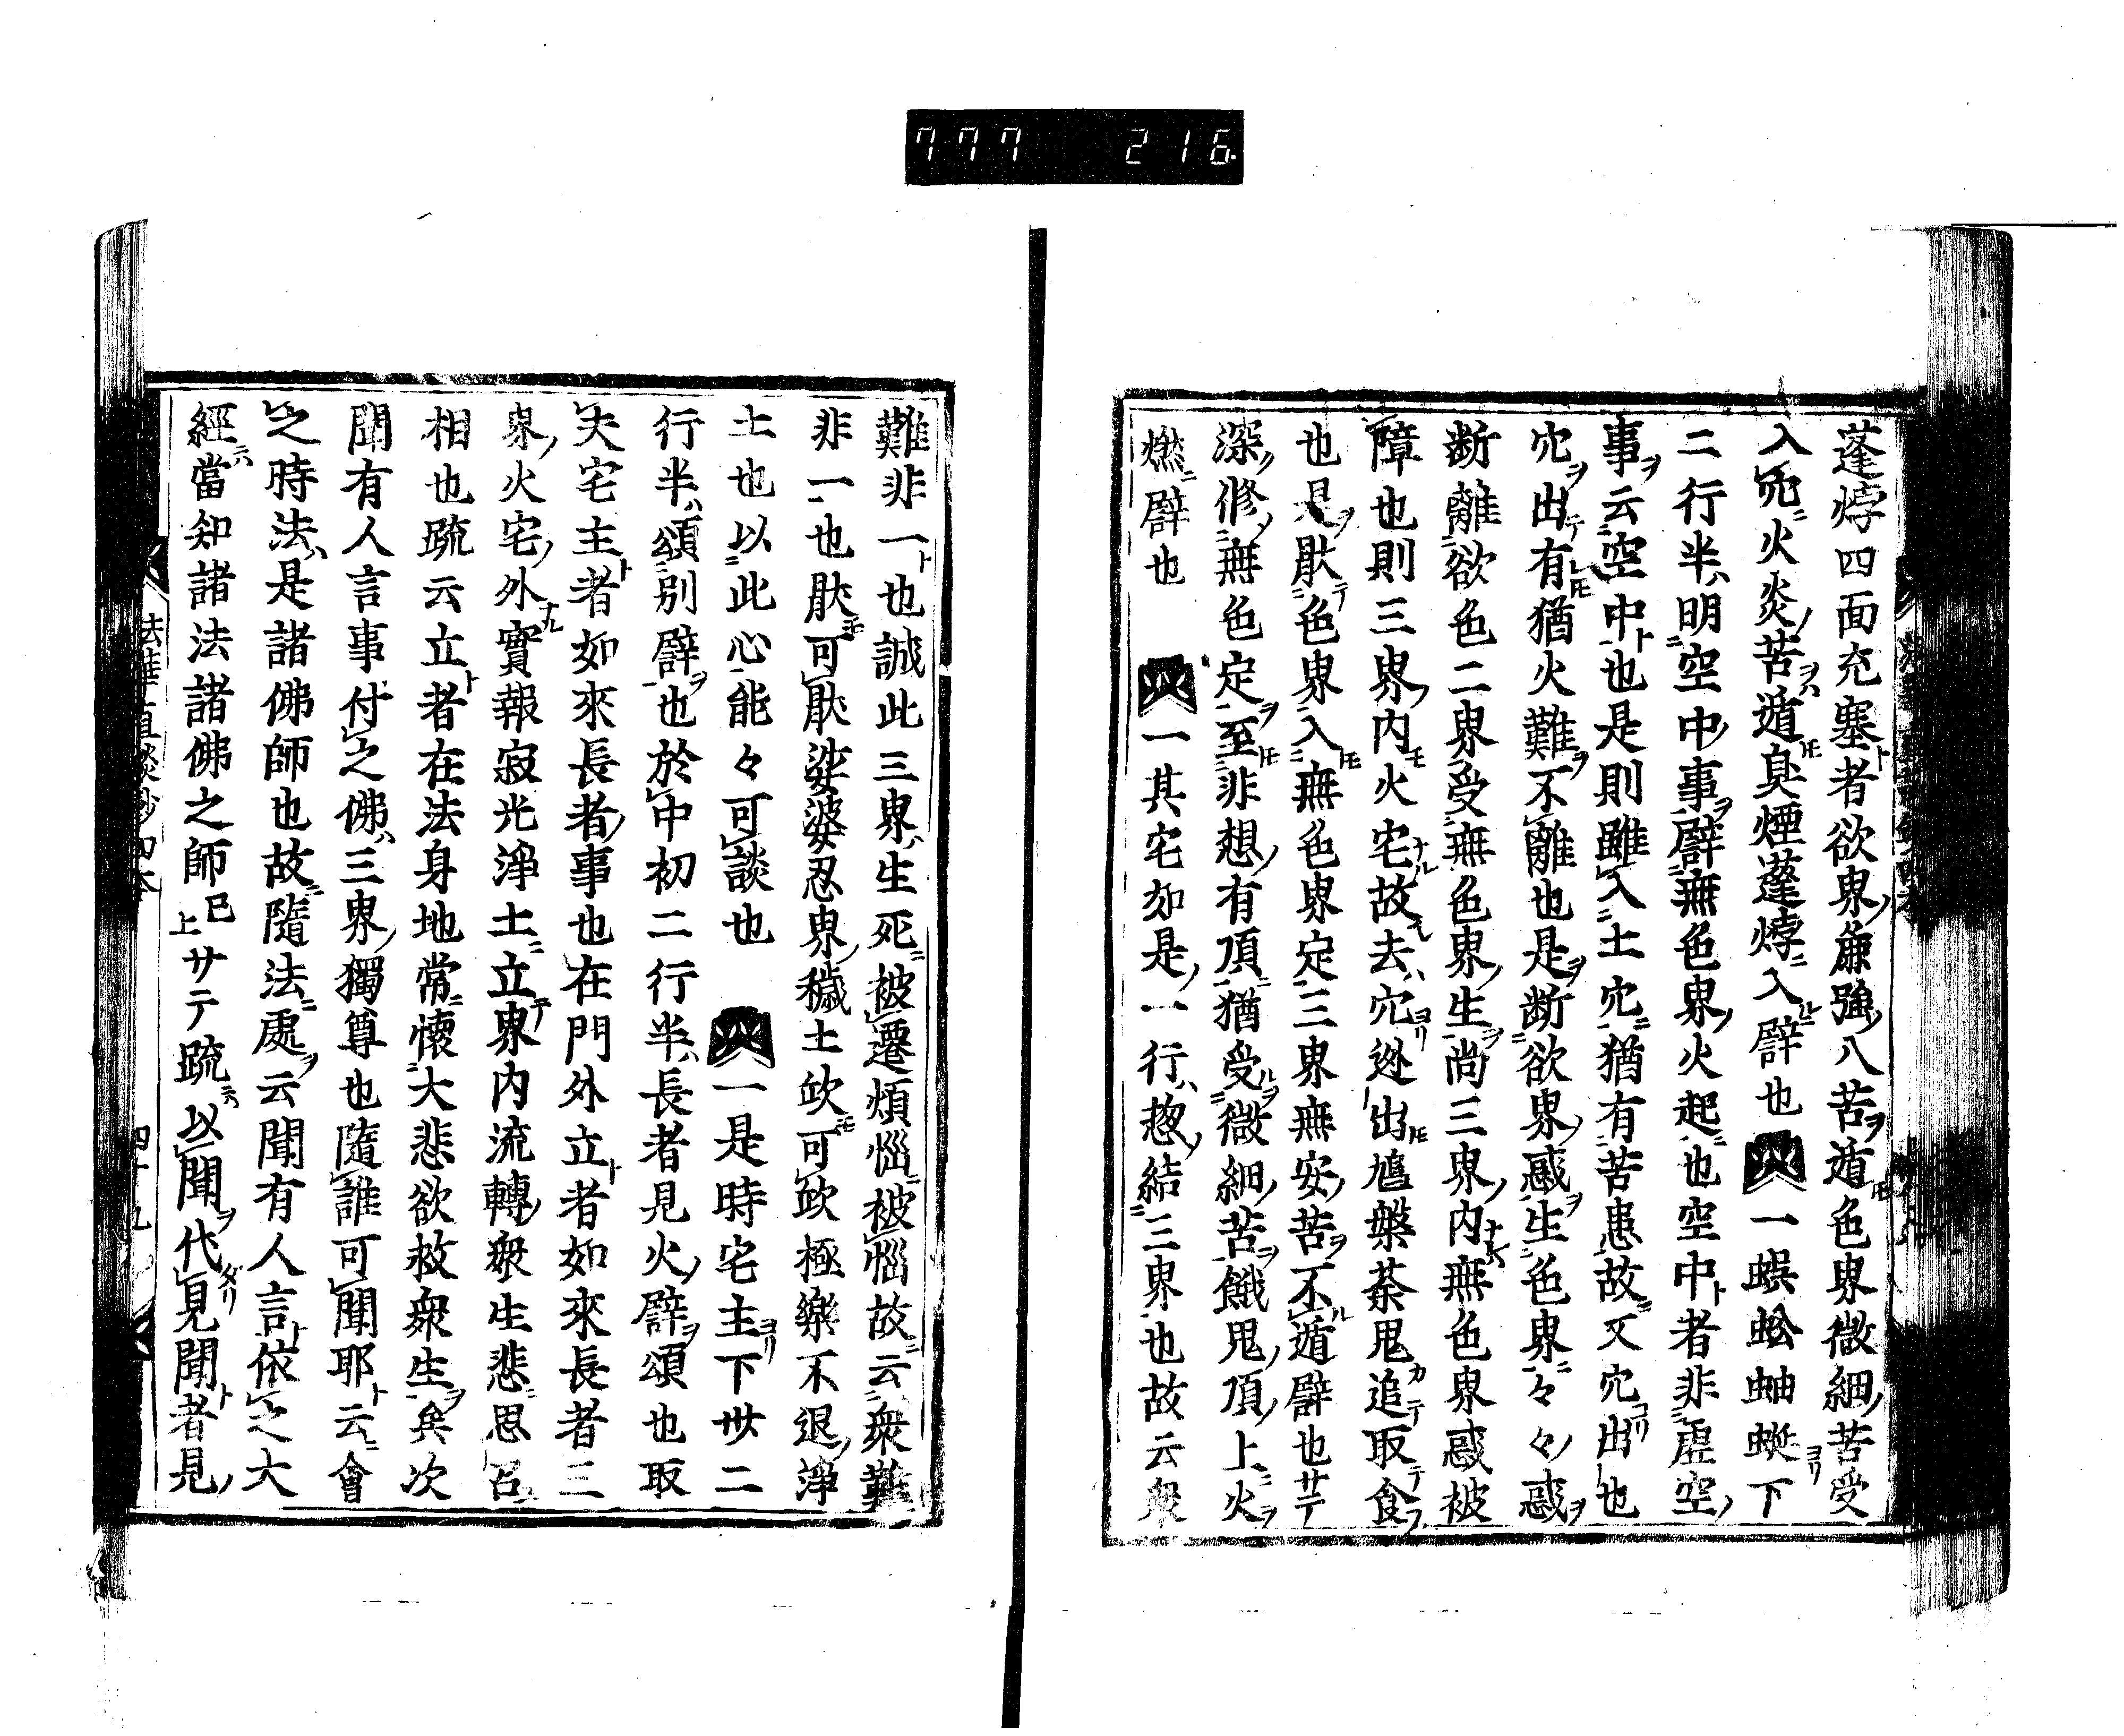 777 216
蓬㶿四面充塞ト者欲界ノ麁強ノ八苦ヲ遁𪜈色界微細ノ苦受
入レ穴ニ火炎ノ苦ヲハ遁𪜈臭煙蓬㶿ニ入ルニ譬也 一蜈蚣蚰蜒ヨリ下
二行半ハ明ニ空中ノ事ヲ譬ニ無色界ノ火起ニ也空中ト者非ニ虚空ノ
事ヲ云ニ空中ト也是則雖レ入ニ土穴ニ猶有ニ苦患故ニ又穴ヨリ出也
穴ヲ出テ有レ𪜈猶火難ヲ不レ離也是ヲ断ニ欲界ノ惑ヲ生ニ色界ニ々々ノ惑ヲ
断離ニ欲色二界受ニ無色界ノ生ヲ尚三界ノ内ナレハ無色界惑被
障也則三界ノ内モ火宅ナル故ニ去ハ穴ヨリ迯出𪜈鳩槃荼鬼カ追テ取テ食フ
也是ヲ厭テ色界入ニ無色界定三界無安ノ苦ヲ不レ遁譬也サテ
深ノ修ノ無色定ヲ至𪜈非想ノ有頂ニ猶受ルヲ微細ノ苦ヲ餓鬼ノ頂ノ上ニ火ヲ
燃ニ譬也 一其宅如是ノ一行ハ惣ノ結ニ三界也故云衆
難非一ト也誠此三界ハ生死ニ被レ遷煩惱ニ被レ惱故ニ云ニ衆難
非一也厭モ可レ厭娑婆忍界ノ穢土欣モ可レ欣極樂不退ノ淨
土也以ニ此心能々可レ談也 一是時宅主ヨリ下丗二
行半ハ頌ニ別譬ヲ也於レ中初二行半ハ長者見火ノ譬ヲ頌也取
レ夫宅主ト者如來長者ノ事也在門外立ト者如來長者三
界ノ火宅ノ外ナル實報寂光淨土ニ立テ界内流轉ノ衆生悲ニ思召
相也疏云立ト者在法身地常ニ懷大悲欲救衆生ヲ矣次
聞有人言事付レ之佛ハ三界ノ獨尊也隨レ誰可レ聞耶ト云ニ會
レ之時法ハ是諸佛師也故ニ隨法ニ處ヲ云聞有人言ト依レ之大
經云當知諸法諸佛之師已上サテ疏云以レ聞ヲ代レ見タリ聞ト者見ノ
法華直談鈔四本 四十九